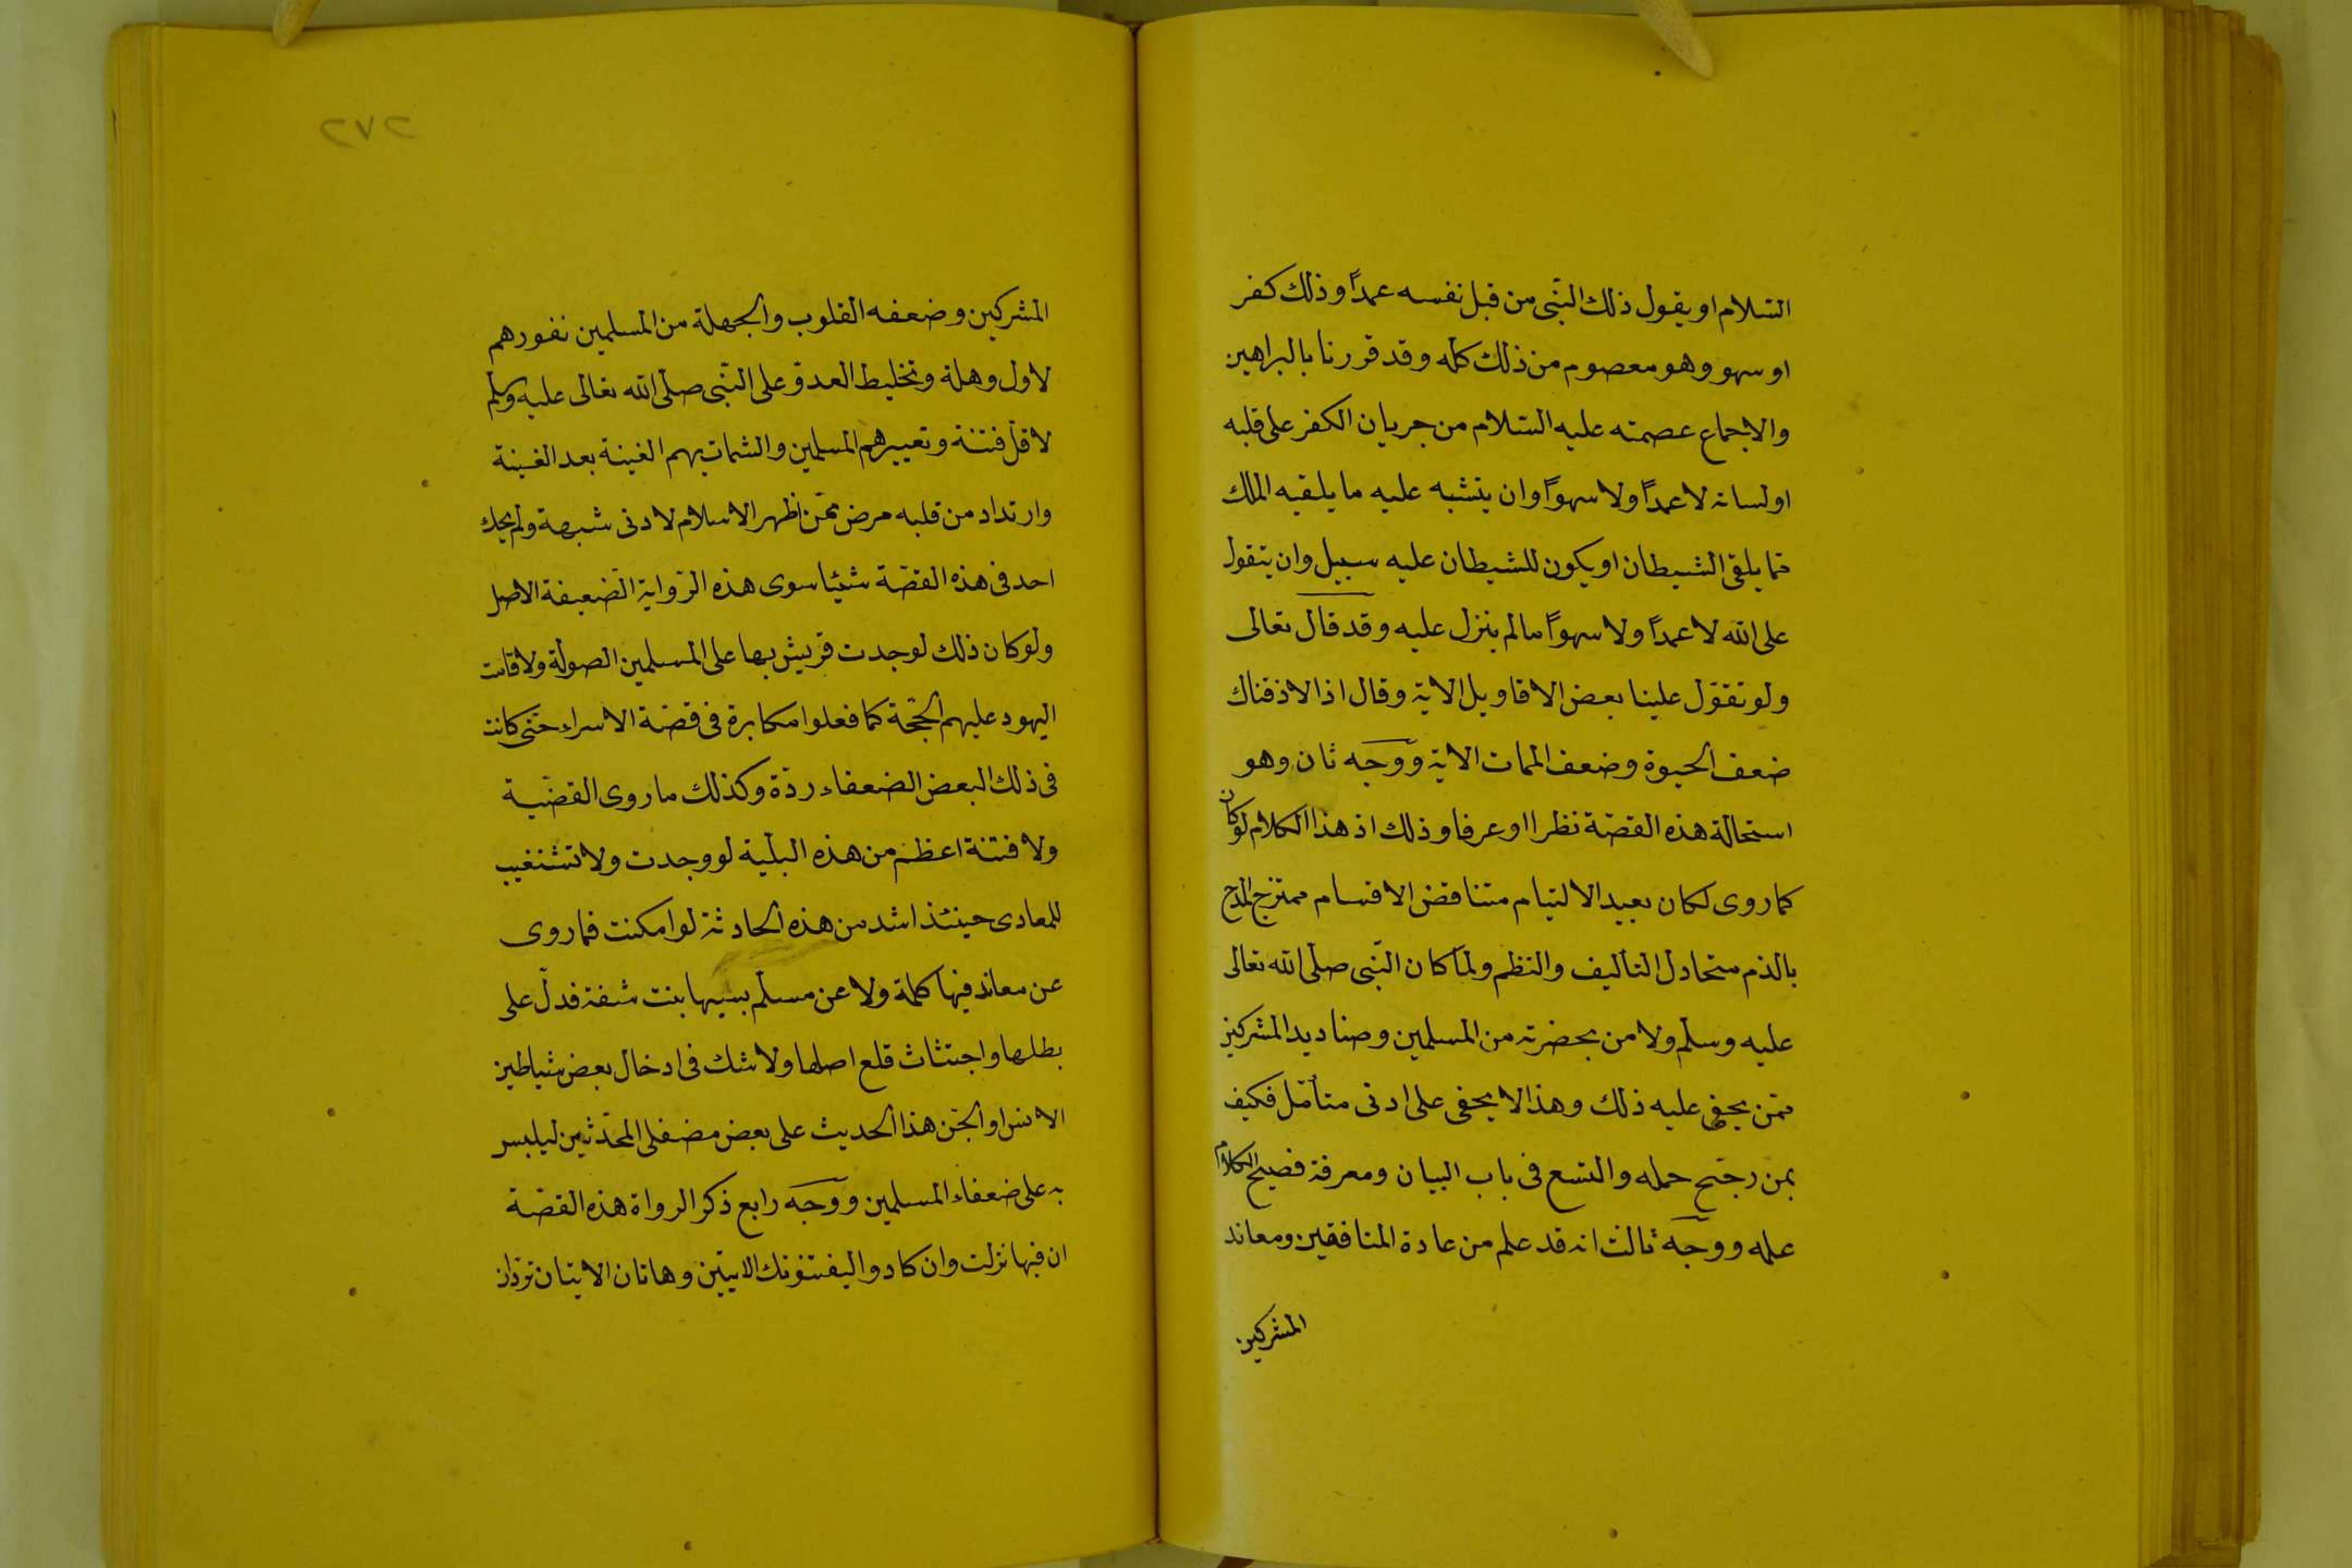 السّلام او يقول ذلك النّبى من قبل نفسه عمدًا وذلك كفر
او سهو وهو معصوم من ذلك كلّه وقد قررنا بالبراهين
والاجماع عصمته عليه السّلام من جريان الكفر على قلبه
او لسانه لا عمدًا ولا سهوًا وان يتشبه عليه ما يلقيه الملك
مما يلقى الشيطان او يكون للشيطان عليه سبيل وان يتقول
على الله لا عمدًا ولا سهوًا مالم ينزل عليه وقد قال تعالى
ولو تقوّل علينا بعض الاقاويل الاية وقال اذا لاذقناك
ضعف الحيوة وضعف الممات الاية ووجه ثان وهو
استحالة هذه القصّة نظرا او عرفا وذلك اذ هذا الكلام لو كان
كما روى لكان بعيد الالتيام متناقض الاقسام ممتزج المدح
بالذم متخاذل التأليف والنظم ولمّا كان النّبى صلّى الله تعالى
عليه وسلّم ولا من بحضرته من المسلمين وصناديد المشركين
ممّن يخفى عليه ذلك وهذا لا يخفى على ادنى متأمّل فكيف
بمن رجّح حمله واتسع فى باب البيان ومعرفة فصيح الكلام
علمه ووجه ثالث انه قد علم من عادة المنافقين ومعاند
المشركين
٢٧٢
المشركين وضعفه القلوب والجهلة من المسلمين نفورهم
لاول وهلة وتخليط العدوّ على النّبى صلّى الله تعالى عليه وسلّم
لاقلّ فتنة وتعييرهم المسلمين والشمات بهم الفينة بعد الفينة
وارتداد من قلبه مرض ممّن اظهر الاسلام لادنى شبهة ولم يحك
احد فى هذه القصّة شيئا سوى هذه الرّواية الضّعيفة الاصل
ولو كان ذلك لوجدت قريش بها على المسلمين الصولة ولاقامت
اليهود عليهم الحجّة كما فعلوا مكابرة فى قصّة الاسراء حتّى كانت
فى ذلك لبعض الضعفاء ردّة وكذلك ما روى القضّية
ولا فتنة اعظم من هذه البليّة لو وجدت ولا تشغيب
للمعادى حينئذ اشد من هذه الحادثة لو امكنت فما روى
عن معاند فيها كلمة ولا عن مسلّم بسيبها بنت شفة فدلّ على
بطلها واجتثاث قلع اصلها ولا شك فى ادخال بعض شياطين
الانس او الجّن هذا الحديث على بعض مضفلى المحدّثين ليلبس
به على ضعفاء المسلمين ووجه رابع ذكر الرواة هذه القصّة
ان فيها نزلت وان كادوا ليفتنونك الايتين وهاتان الايتان تردّان